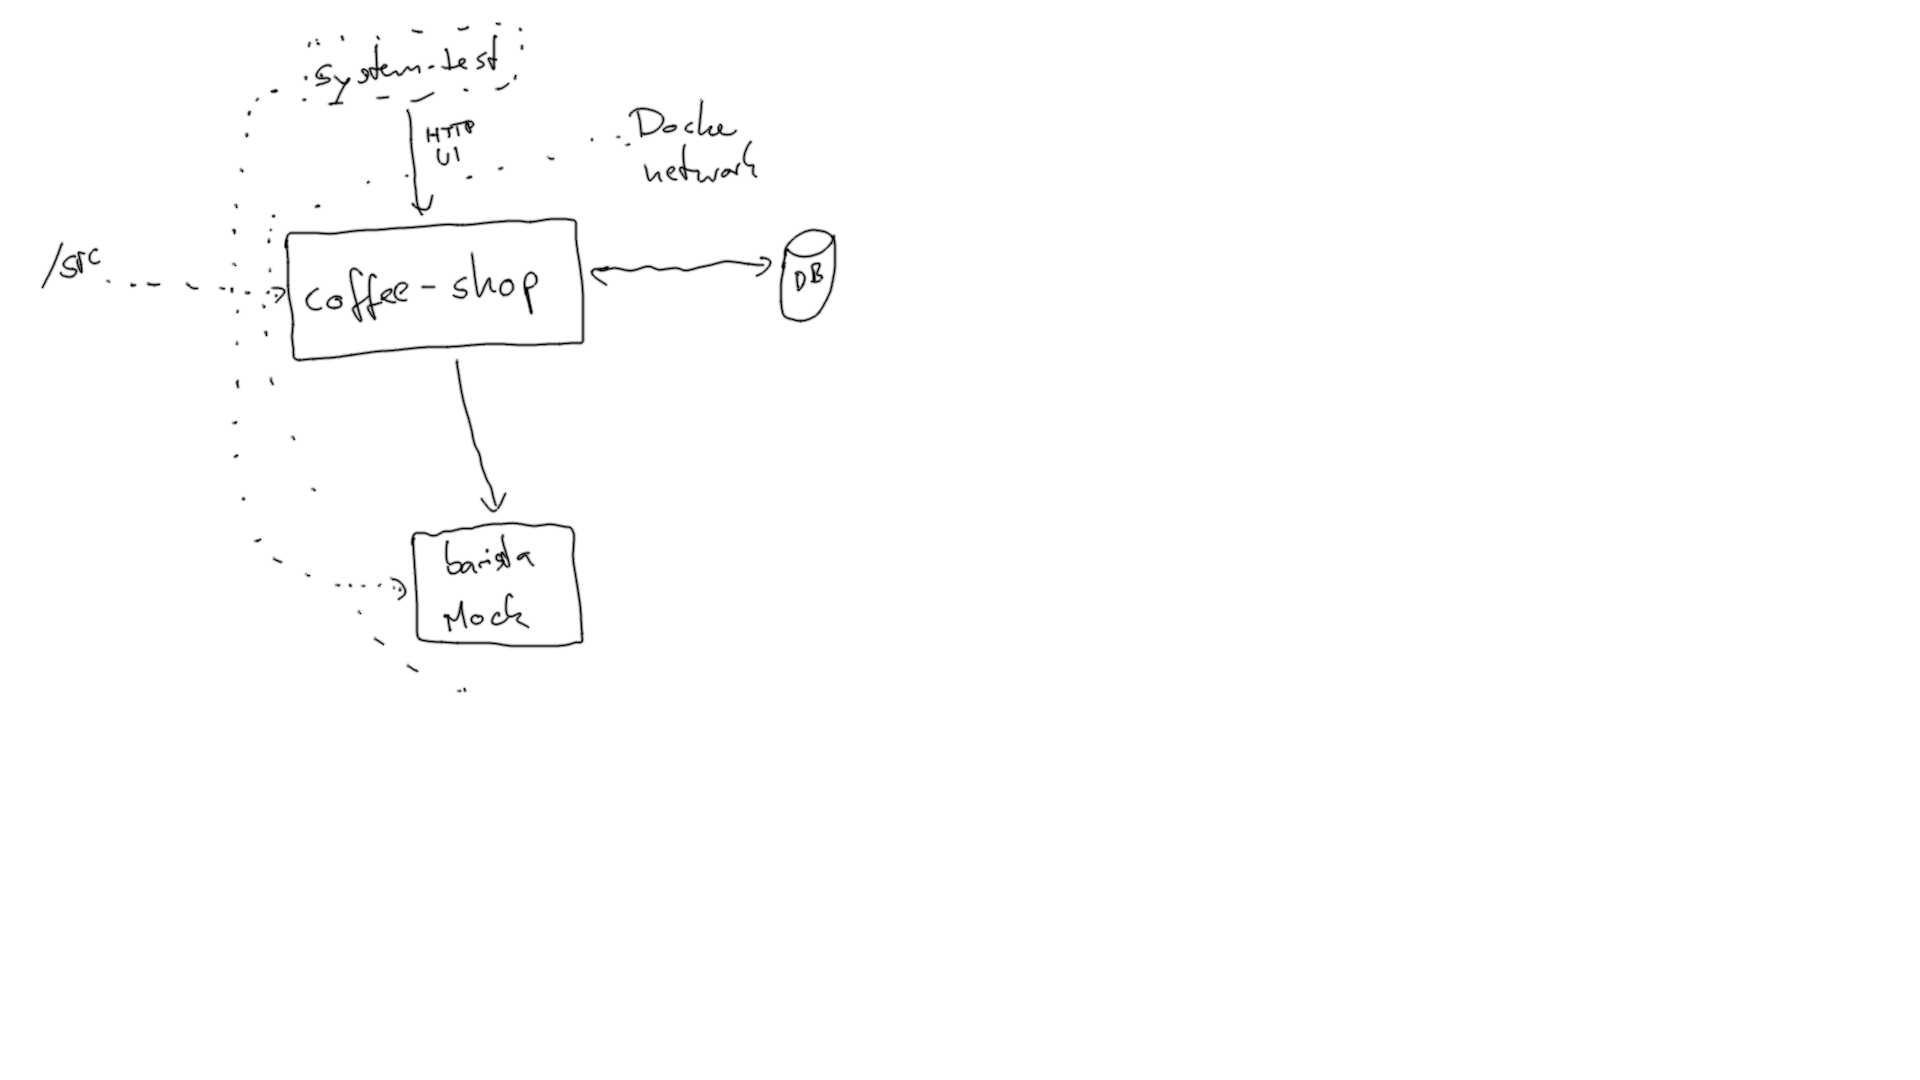 system-test
HTTP
UI
Docke
network
/src
coffee-shop
DB
barista
Mock